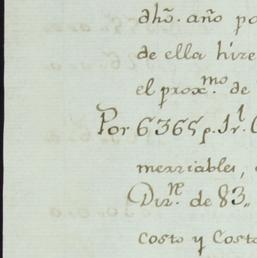 dhō. año po
de ella hize
el prox.mo de
Por 6365 p. 1 r.l
mezriables,
Dir.ne de 83,,
costo y Costo